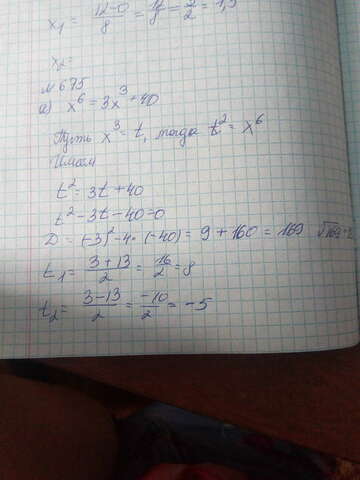 x₁ = (12-0)/8 = 12/8 = 3/2 = 1,5
x₂ =
№ 675
а) x⁶ = 3x³ + 40
Пусть x³ = t, тогда t² = x⁶
Имеем
t² = 3t + 40
t² - 3t - 40 = 0
D = (-3)² - 4 · (-40) = 9 + 160 = 169 √169 =
t₁ = (3 + 13)/2 = 16/2 = 8
t₂ = (3 - 13)/2 = -10/2 = -5